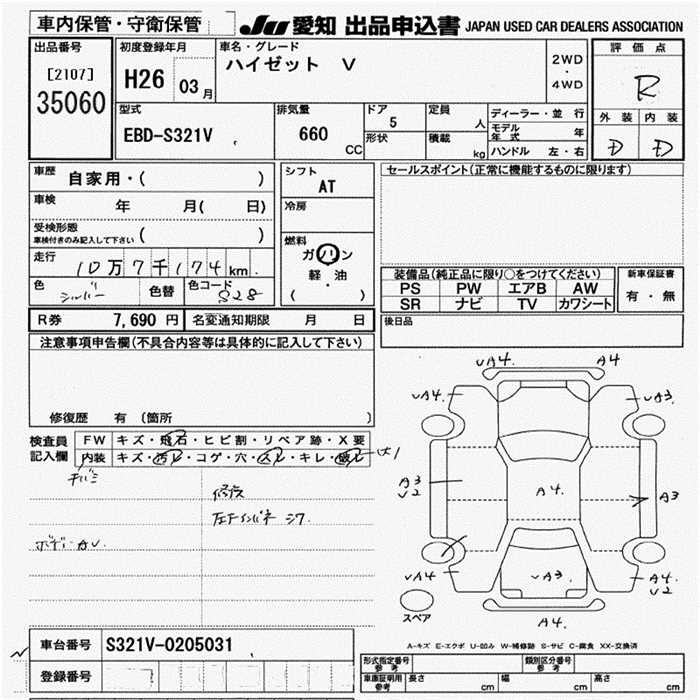 車内保管・守衛保管 JU 愛知 出品申込書 JAPAN USED CAR DEALERS ASSOCIATION
出品番号 初度登録年月 車名・グレード 評価点
[2107] H26 03月 ハイゼット V 2WD・4WD R
35060 外装 内装
型式 排気量 ドア 定員 ディーラー・並行 D D
EBD-S321V 660 CC 5 人 モデル年式 年
形状 積載 kg ハンドル 左・右
車歴 自家用・( ) シフト AT セールスポイント(正常に機能するものに限ります)
車検 年 月( 日) 冷房
受検形態 車検付きのみ記入して下さい ( )
燃料 ガソリン
軽・油
( )
走行 10万7千174km.
色 シルバー 色替 色コード S28
装備品(純正品に限り○をつけてください) 新車保証書
PS PW エアB AW 有・無
SR ナビ TV カワシート
R券 7,690円 名変通知期限 月 日 後日品
注意事項申告欄(不具合内容等は具体的に記入して下さい)
修復歴 有 (箇所 )
検査員記入欄 FW キズ・飛石・ヒビ割・リペア跡・X要
内装 キズ・汚レ・コゲ・穴・スレ・キレ・破レ
チバミ
修復
左Fインパネ シワ
ボデーAU.
√A4. A4
√A4. √A3.
A3 √2 A4. A3
√A4 √A3. A4. √2
A4.
スペア
A-キズ E-エクボ U-凹み W-補修跡 S-サビ C-腐食 XX-交換済
車台番号 S321V-0205031
登録番号
形式指定番号 参考 類別区分番号 参考
車庫証明用 参考 長さ cm 幅 cm 高さ cm